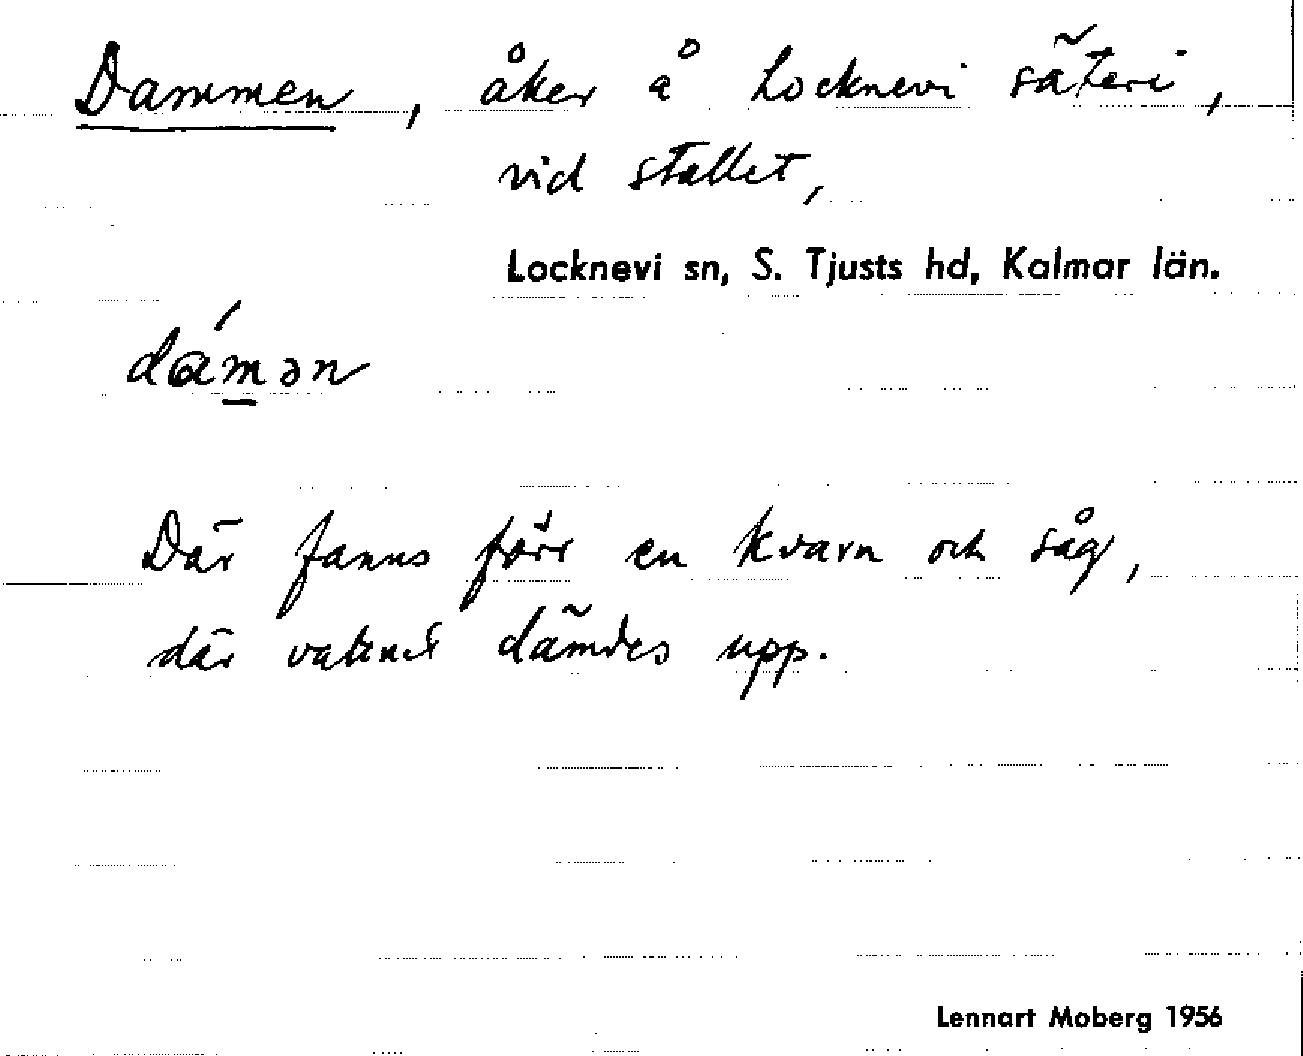 Dammen, åker å Locknevi säteri,
vid stallet,
Locknevi sn, S. Tjusts hd, Kalmar län.
dám̲ən
Där fanns förr en kvarn och såg,
där vattnet dämdes upp.
Lennart Moberg 1956